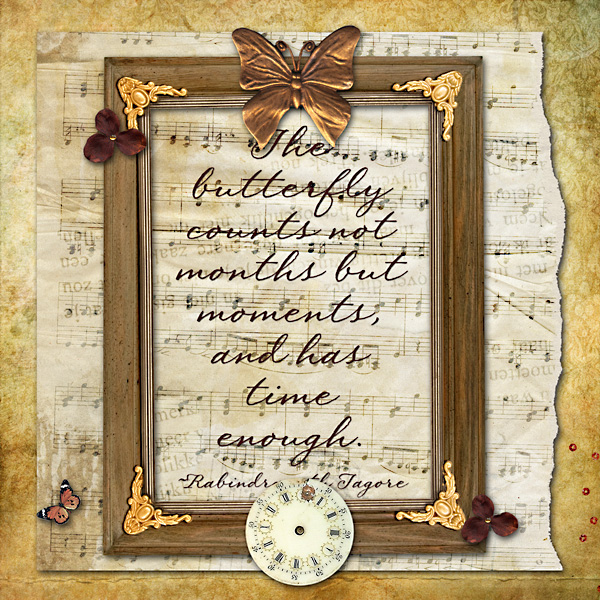 The
butterfly
counts not
months but
moments,
and has
time
enough.
~Rabindranath Tagore